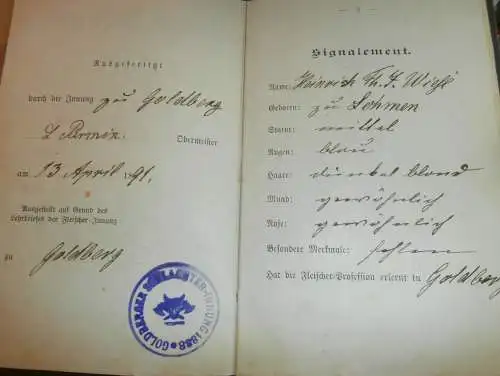 Ausgefertigt
durch die Innung zu Goldberg
Obermeister
am 13 April 1891.
Ausgestellt auf Grund des
Lehrbriefes der Fleischer-Innung
zu Goldberg
GOLDBERGER SCHLACHTER-INNUNG 1888
— 3 —
Signalement.
Name: Heinrich Th. J. Wiese
Geboren: zu Lohmen
Statur: mittel
Augen: blau
Haare: dunkel blond
Mund: gewöhnlich
Nase: gewöhnlich
Besondere Merkmale: fehlen
Hat die Fleischer-Profession erlernt in Goldberg